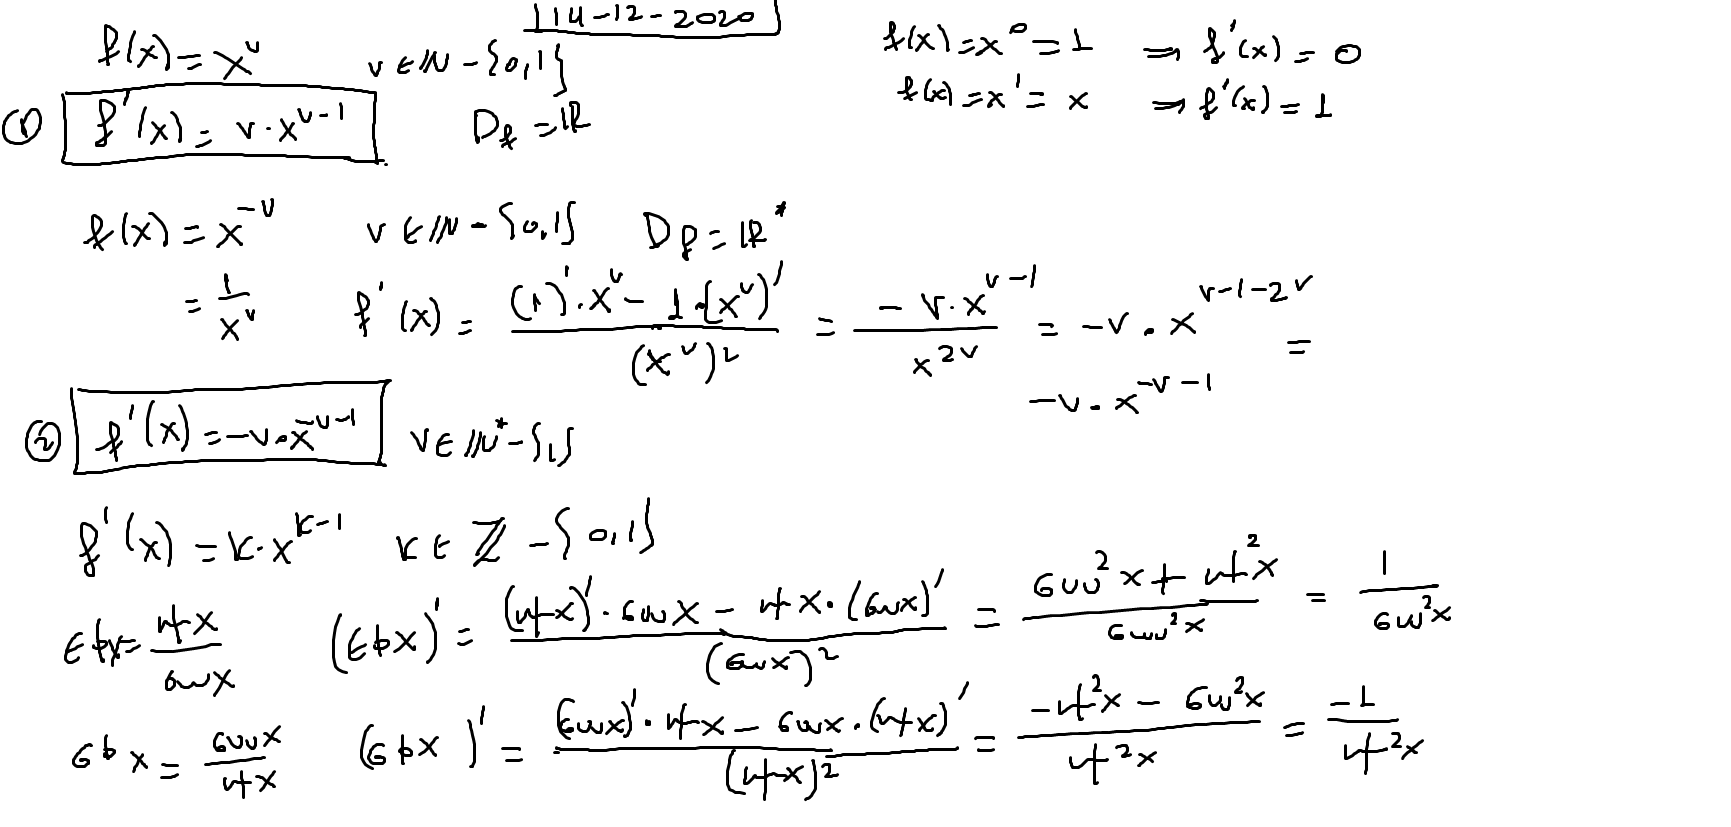 14-12-2020
f(x) = x^ν   ν ∈ ℕ - {0,1}   f(x) = x^0 = 1 ⇒ f'(x) = 0
① f'(x) = ν · x^(ν-1)   D_f = ℝ   f(x) = x^1 = x ⇒ f'(x) = 1
f(x) = x^(-ν)   ν ∈ ℕ - {0,1}   D_f = ℝ*
= 1/x^ν   f'(x) = ((1)' · x^ν - 1 · (x^ν)')/(x^ν)^2 = (-ν · x^(ν-1))/x^(2ν) = -ν · x^(ν-1-2ν) =
-ν · x^(-ν-1)
② f'(x) = -ν · x^(-ν-1)   ν ∈ ℕ* - {1}
f'(x) = κ · x^(κ-1)   κ ∈ ℤ - {0,1}
εφx = ημx/συνx   (εφx)' = ((ημx)' · συνx - ημx · (συνx)')/(συνx)^2 = (συν^2x + ημ^2x)/συν^2x = 1/συν^2x
σφx = συνx/ημx   (σφx)' = ((συνx)' · ημx - συνx · (ημx)')/(ημx)^2 = (-ημ^2x - συν^2x)/ημ^2x = -1/ημ^2x